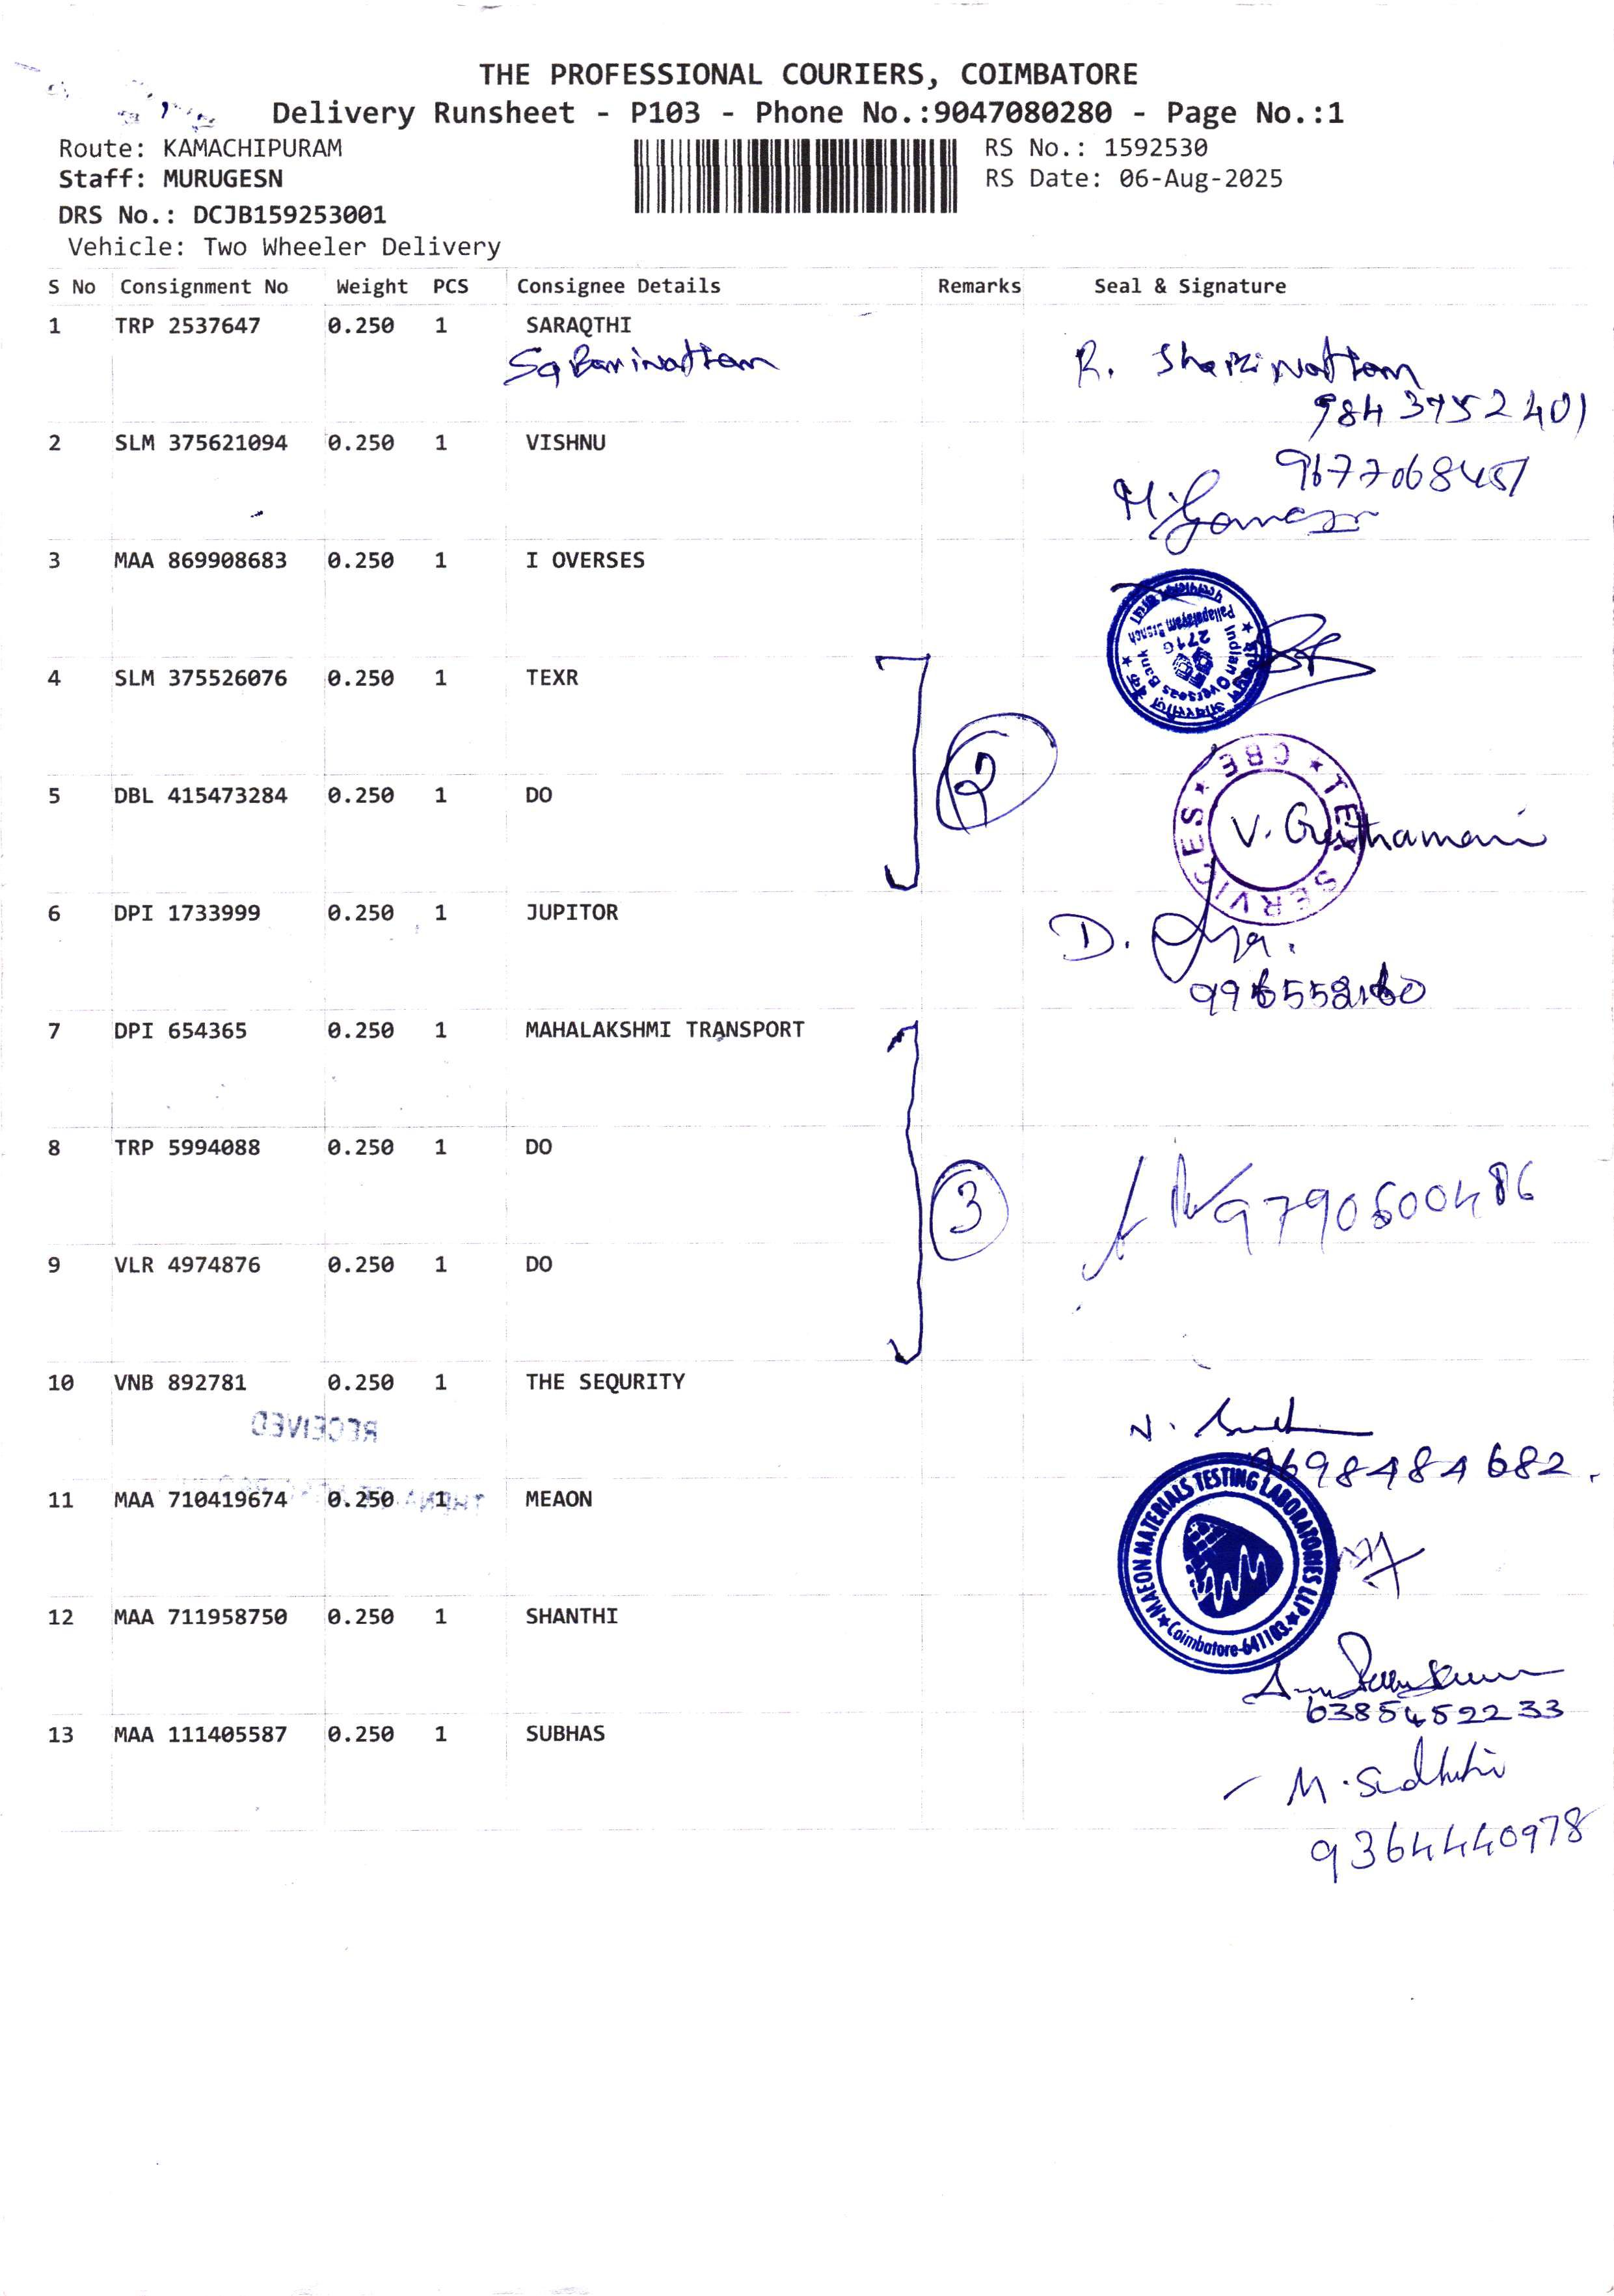 THE PROFESSIONAL COURIERS, COIMBATORE
Delivery Runsheet - P103 - Phone No.:9047080280 - Page No.:1
Route: KAMACHIPURAM
Staff: MURUGESN
DRS No.: DCJB159253001
Vehicle: Two Wheeler Delivery
RS No.: 1592530
RS Date: 06-Aug-2025
S No Consignment No Weight PCS Consignee Details Remarks Seal & Signature
1 TRP 2537647 0.250 1 SARAQTHI
R.
2 SLM 375621094 0.250 1 VISHNU
3 MAA 869908683 0.250 1 I OVERSES
Indian Overseas Bank
2716
4 SLM 375526076 0.250 1 TEXR
2
5 DBL 415473284 0.250 1 DO
TEX SERVICES ★ CBE ★
V.
6 DPI 1733999 0.250 1 JUPITOR
D.
7 DPI 654365 0.250 1 MAHALAKSHMI TRANSPORT
8 TRP 5994088 0.250 1 DO
3
9790600486
9 VLR 4974876 0.250 1 DO
10 VNB 892781 0.250 1 THE SEQURITY
RECEIVED
N.
9698484682.
11 MAA 710419674 0.250 1 MEAON
★ MAEON MATERIALS TESTING LABORATORIES LLP ★
Coimbatore-641103.
12 MAA 711958750 0.250 1 SHANTHI
6385452233
13 MAA 111405587 0.250 1 SUBHAS
M.
9364440978